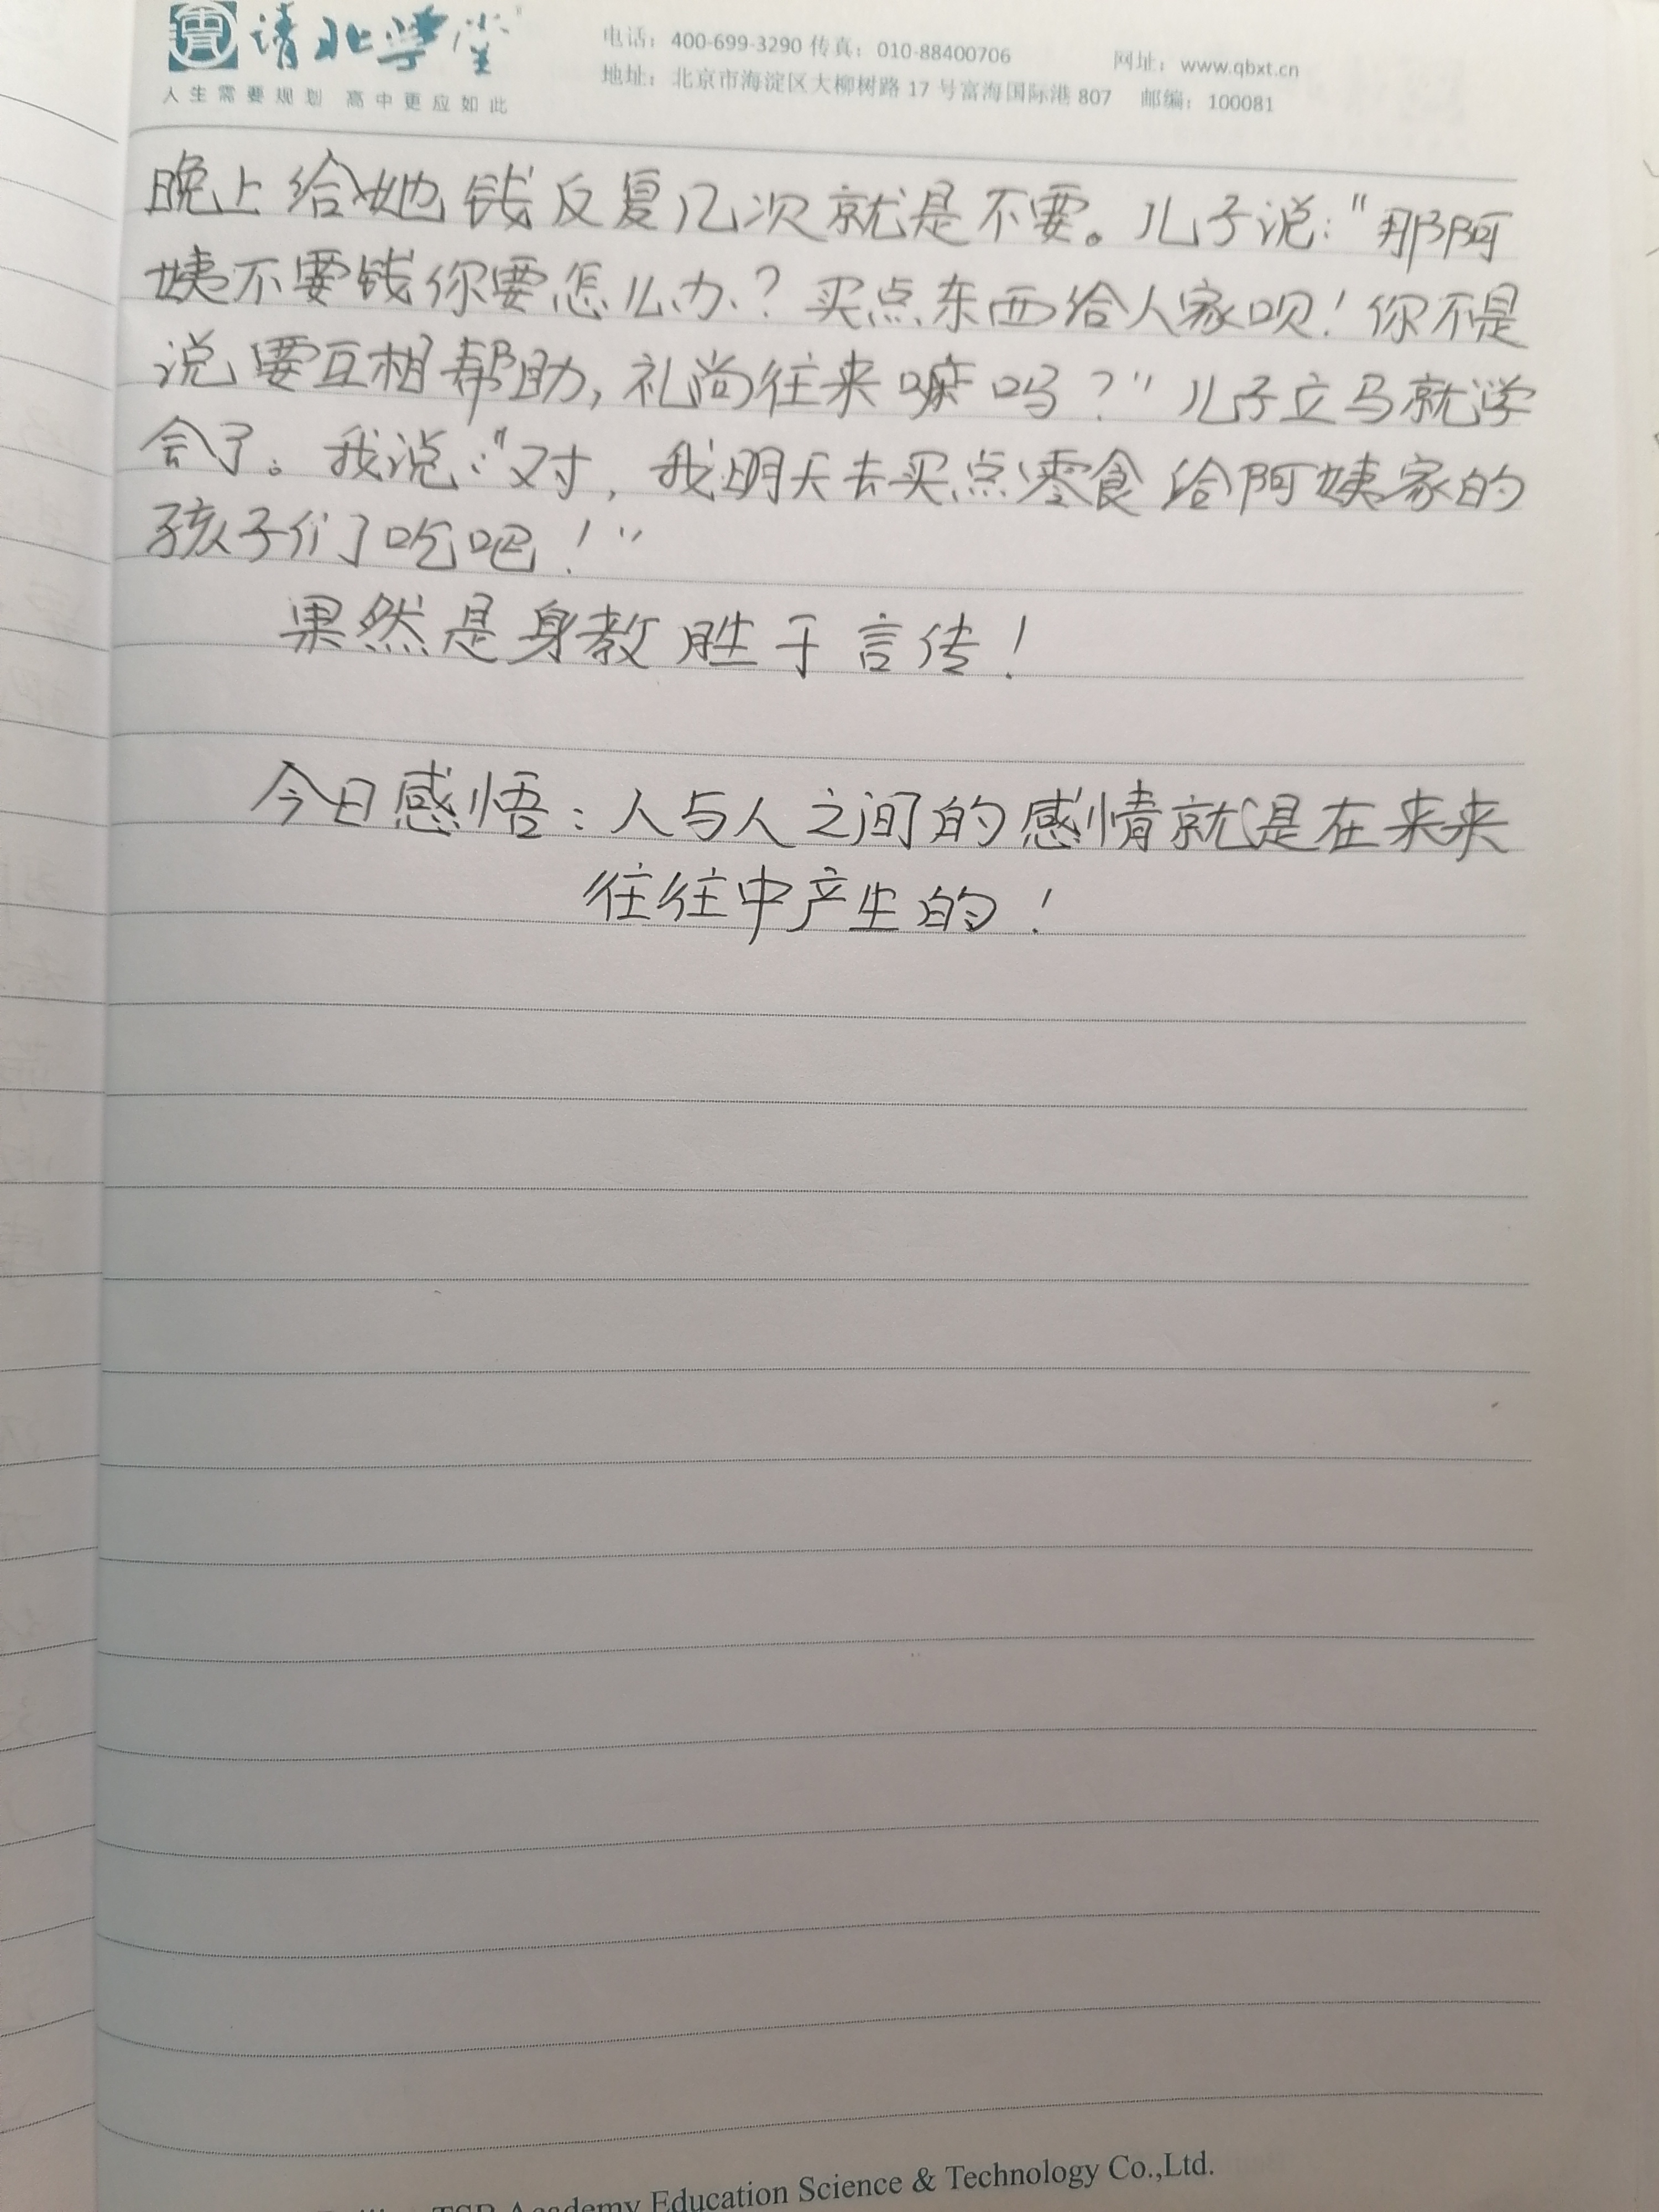 清北学堂
人生需要规划 高中更应如此
电话：400-699-3290 传真：010-88400706 网址：www.qbxt.cn
地址：北京市海淀区大柳树路 17 号富海国际港 807 邮编：100081
晚上给她钱反复几次就是不要。儿子说："那阿
姨不要钱你要怎么办？买点东西给人家呗！你不是
说要互相帮助，礼尚往来嘛吗？"儿子立马就学
会了。我说："对，我明天去买点零食给阿姨家的
孩子们吃吧！"
果然是身教胜于言传！
今日感悟：人与人之间的感情就是在来来
往往中产生的！
TSB Academy Education Science & Technology Co.,Ltd.